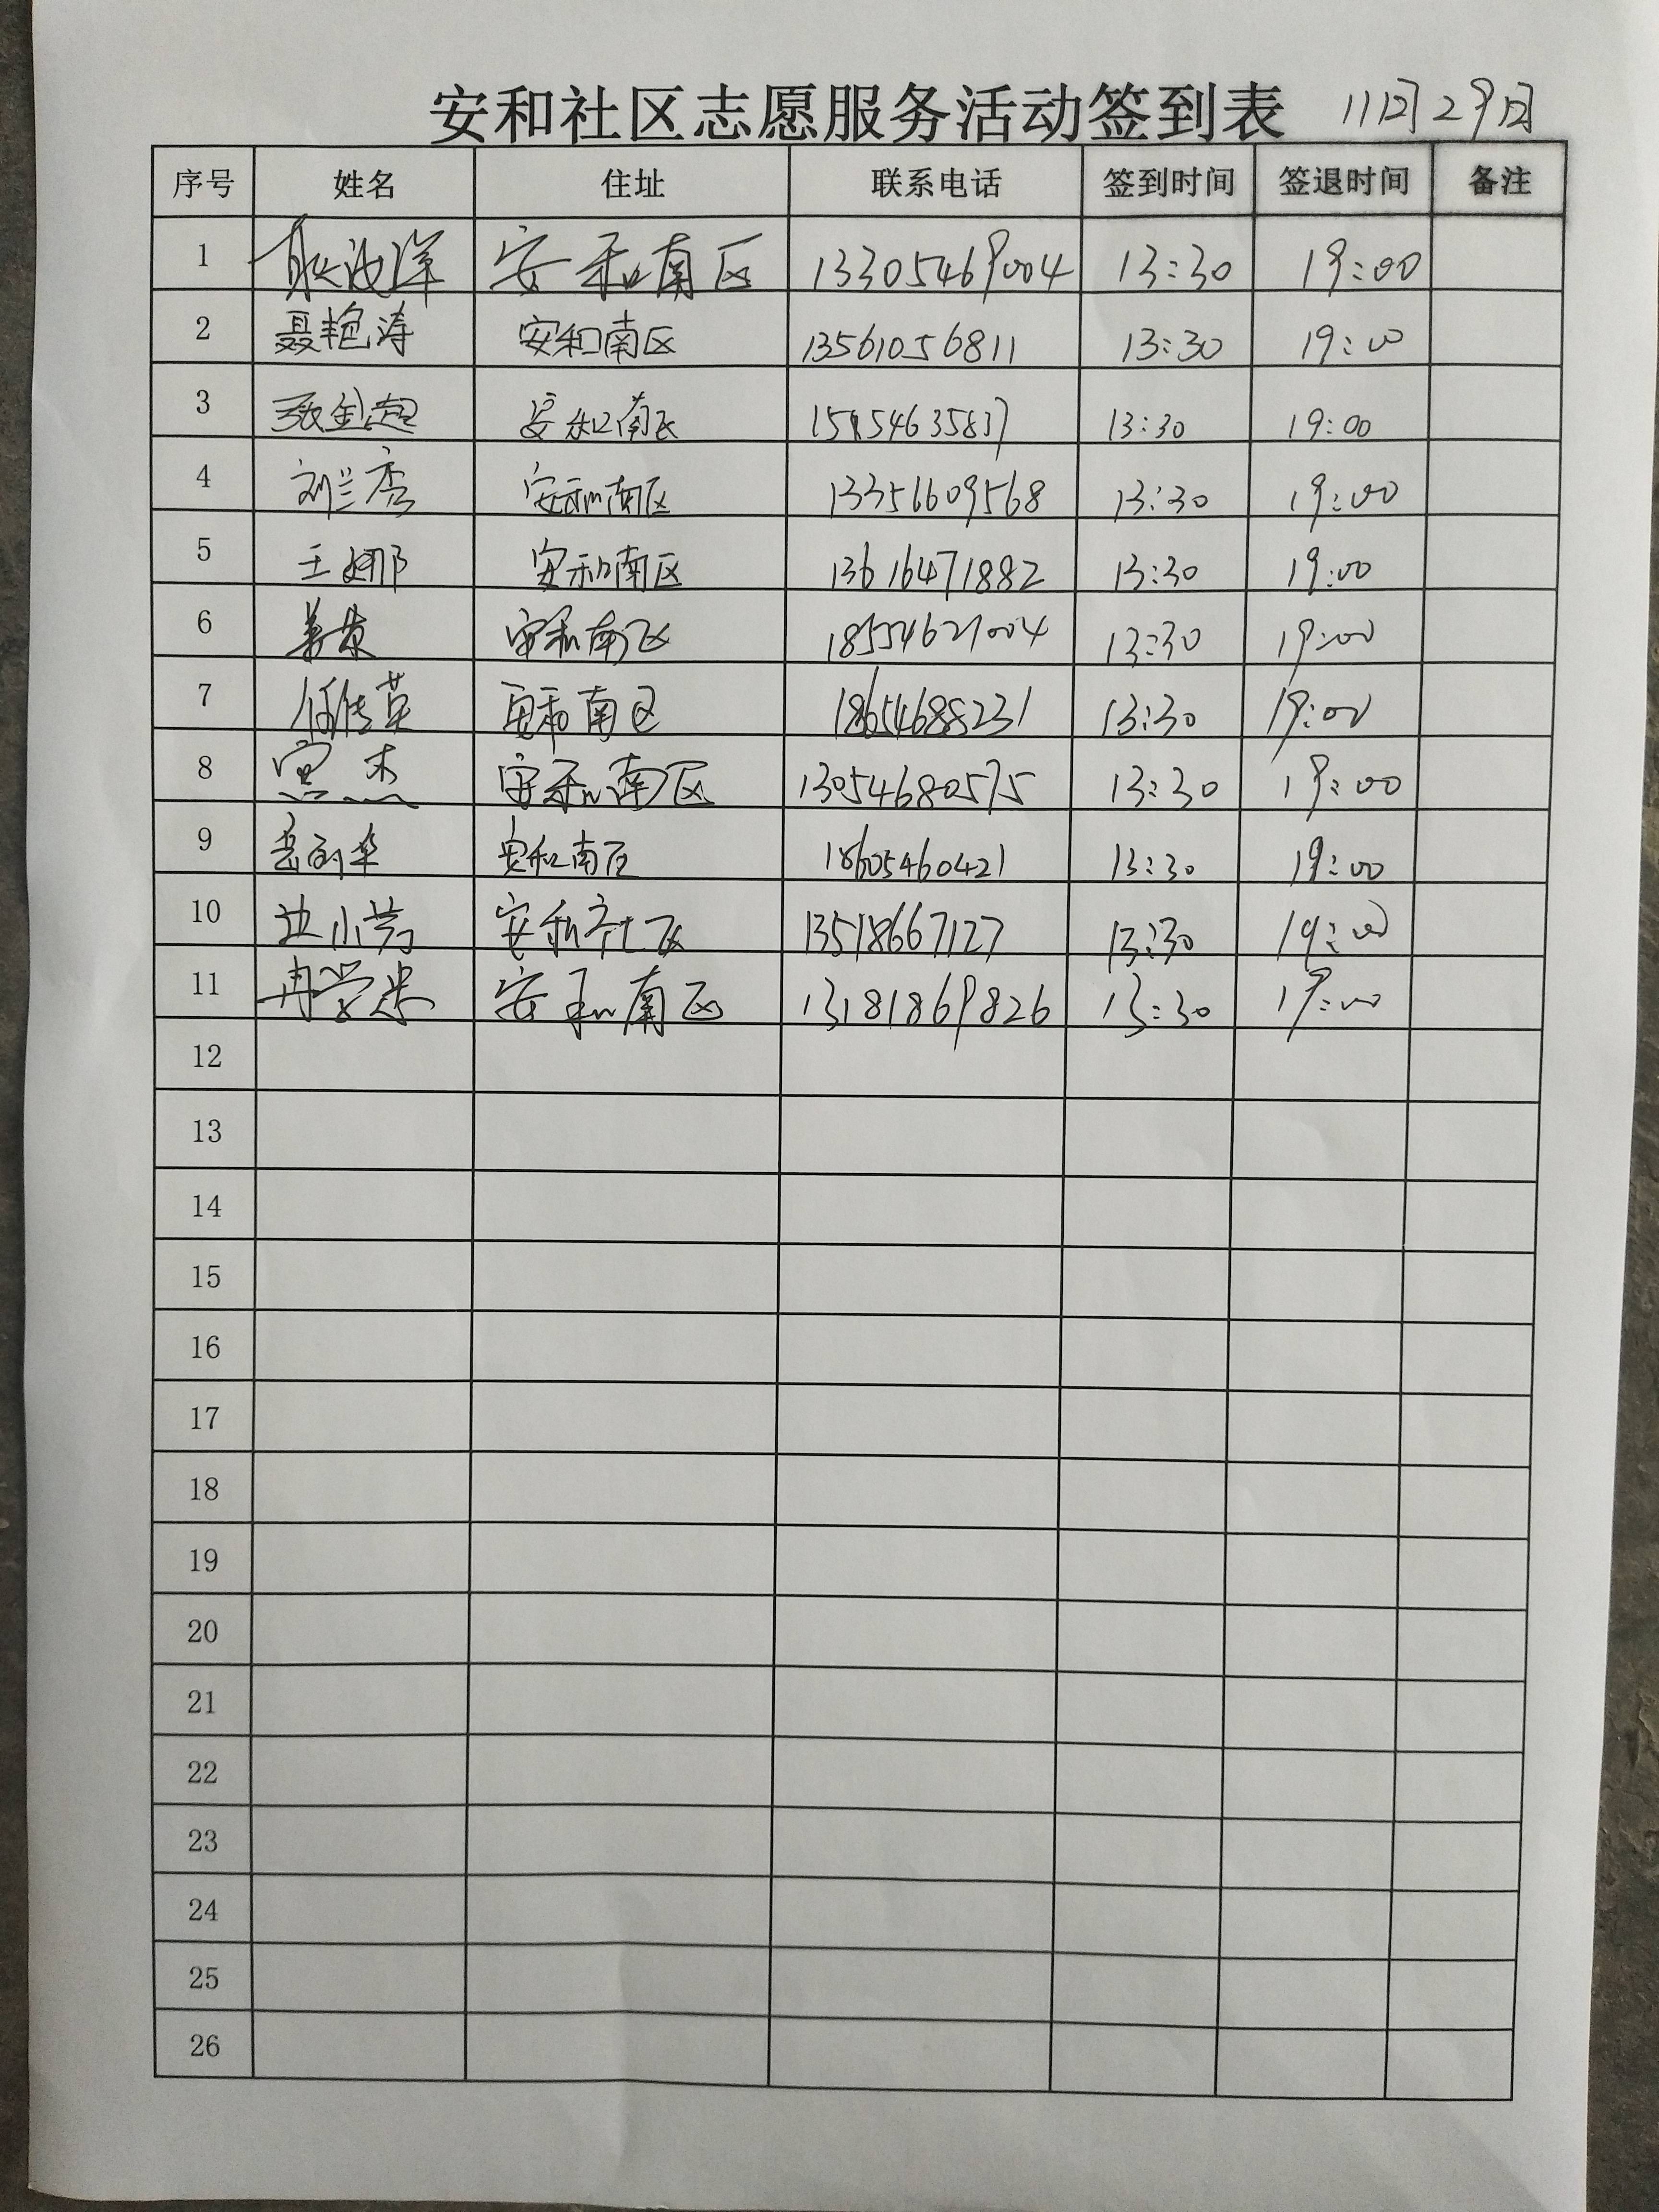 安和社区志愿服务活动签到表 11月29日
序号 姓名 住址 联系电话 签到时间 签退时间 备注
1 耿海洋 安和南区 13305469004 13:30 19:00
2 聂艳涛 安和南区 13561056811 13:30 19:00
3 张金超 安和南区 13:30 19:00
4 刘兰秀 安和南区 13356609568 13:30 19:00
5 王娜 安和南区 13616471882 13:30 19:00
6 安和南区 18554621004 13:30 19:00
7 任传英 安和南区 18654688231 13:30 19:00
8 宾杰 安和南区 13054680575 13:30 19:00
9 安和南区 18605460421 13:30 19:00
10 边小芳 安和社区 13518667127 13:30 19:00
11 冉学忠 安和南区 13181869826 13:30 19:00
12
13
14
15
16
17
18
19
20
21
22
23
24
25
26